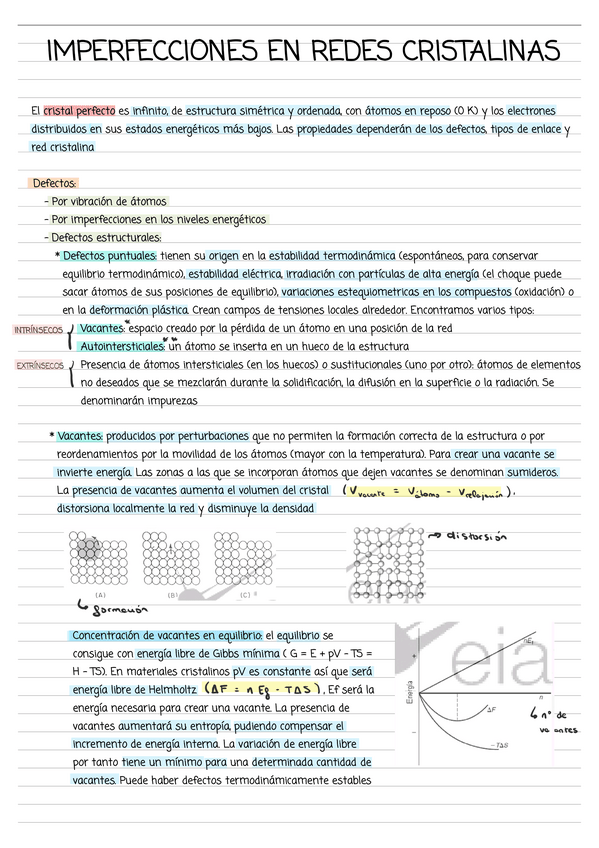 IMPERFECCIONES EN REDES CRISTALINAS
El cristal perfecto es infinito, de estructura simétrica y ordenada, con átomos en reposo (0 K) y los electrones
distribuidos en sus estados energéticos más bajos. Las propiedades dependerán de los defectos, tipos de enlace y
red cristalina
Defectos:
- Por vibración de átomos
- Por imperfecciones en los niveles energéticos
- Defectos estructurales:
* Defectos puntuales: tienen su origen en la estabilidad termodinámica (espontáneos, para conservar
equilibrio termodinámico), estabilidad eléctrica, irradiación con partículas de alta energía (el choque puede
sacar átomos de sus posiciones de equilibrio), variaciones estequiometricas en los compuestos (oxidación) o
en la deformación plástica. Crean campos de tensiones locales alrededor. Encontramos varios tipos:
INTRÍNSECOS Vacantes: espacio creado por la pérdida de un átomo en una posición de la red
Autointersticiales: un átomo se inserta en un hueco de la estructura
EXTRÍNSECOS Presencia de átomos intersticiales (en los huecos) o sustitucionales (uno por otro): átomos de elementos
no deseados que se mezclarán durante la solidificación, la difusión en la superficie o la radiación. Se
denominarán impurezas
* Vacantes: producidos por perturbaciones que no permiten la formación correcta de la estructura o por
reordenamientos por la movilidad de los átomos (mayor con la temperatura). Para crear una vacante se
invierte energía. Las zonas a las que se incorporan átomos que dejen vacantes se denominan sumideros.
La presencia de vacantes aumenta el volumen del cristal (V vacante = V átomo - V relajación),
distorsiona localmente la red y disminuye la densidad
→ distorsión
(A) (B) (C)
↳ formación
Concentración de vacantes en equilibrio: el equilibrio se
consigue con energía libre de Gibbs mínima ( G = E + pV - TS =
H - TS). En materiales cristalinos pV es constante así que será
energía libre de Helmholtz (ΔF = n Ef - TΔS), Ef será la
energía necesaria para crear una vacante. La presencia de
vacantes aumentará su entropía, pudiendo compensar el
incremento de energía interna. La variación de energía libre
por tanto tiene un mínimo para una determinada cantidad de
vacantes. Puede haber defectos termodinámicamente estables
eia
nEf
Energía
+
n
ΔF
↳ nº de
vacantes
−
-TΔS